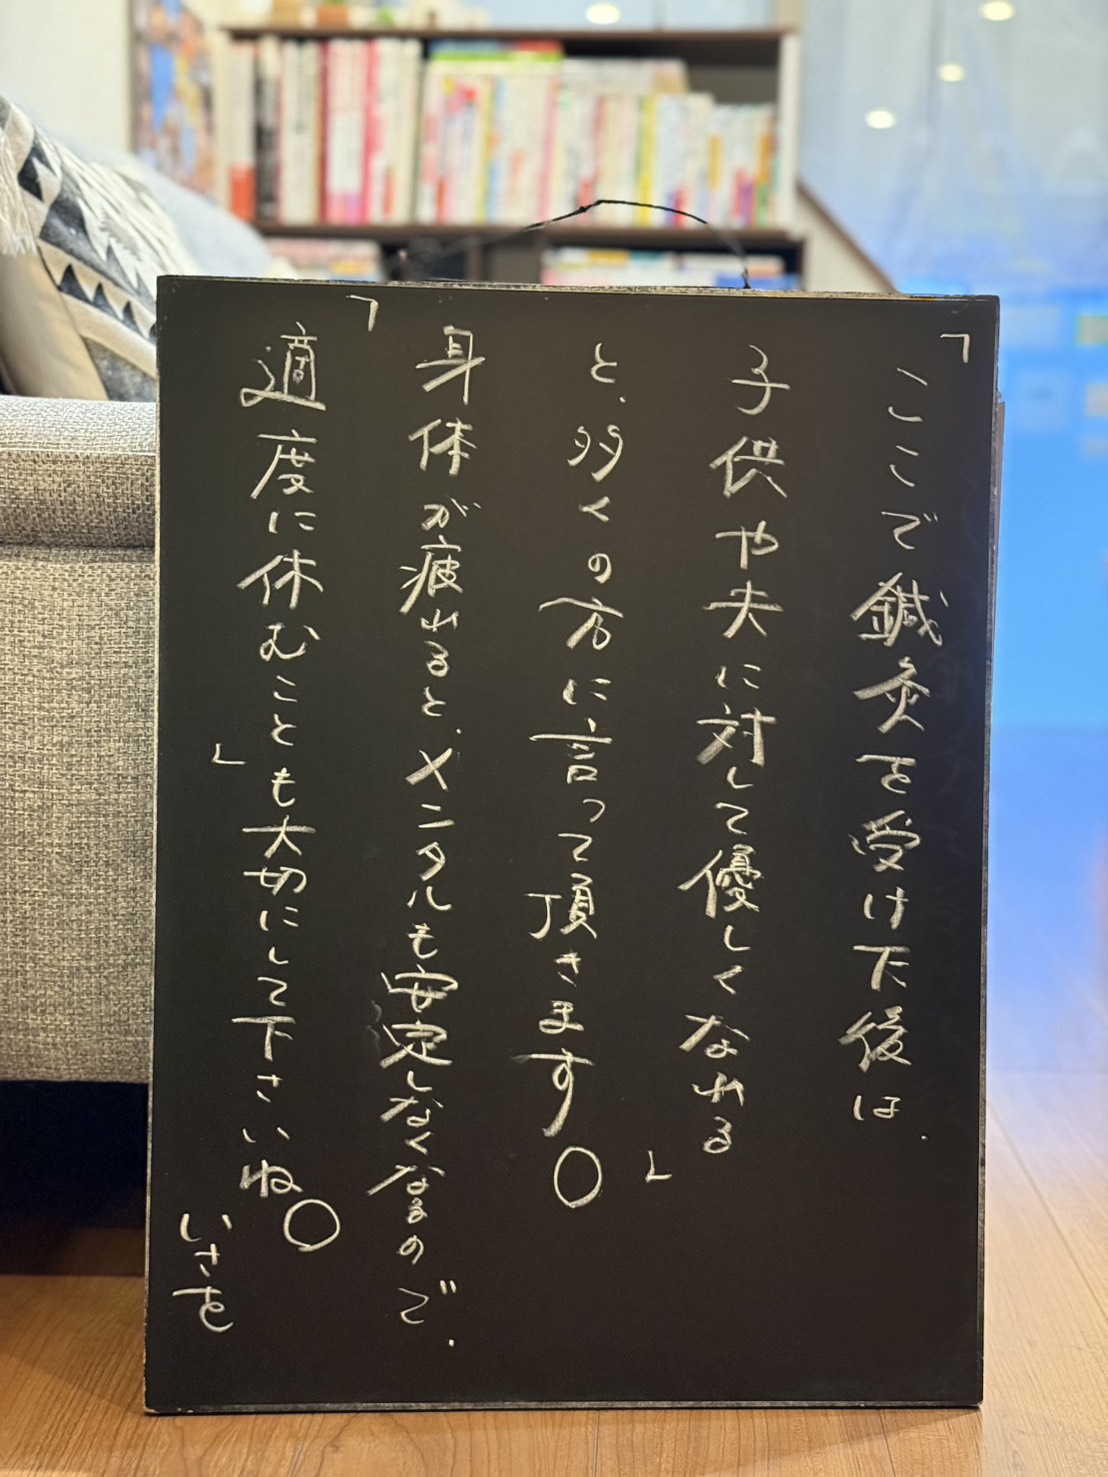 「ここで鍼灸を受けた後は、
子供や夫に対して優しくなれる」
と、多くの方に言って頂きます。
「身体が疲れると、メンタルも安定しなくなるので、
適度に休むことも大切にして下さいね。」
いさを